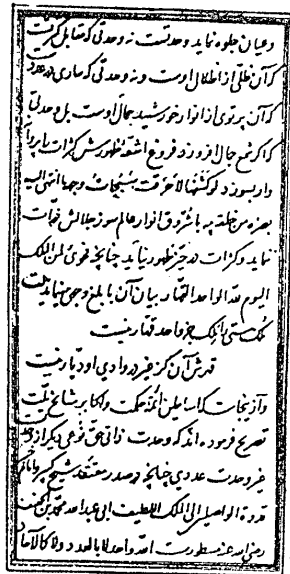 وعیان جلوه نماید وحدتست نه وحدتی که مقابل کثرت
که آن ظلّی از اظلال اوست و نه وحدتی که ساری در حدود
که آن پرتوی از انوار خورشید جمال اوست بل وحدتی
که اگر شمع جمال افروزد فروغ اشعّه ظهورش کثرات را پروانه
وار بسوزد لو کشفها لاحرقت سبحات وجهه ما انتهی الیه
بصره من خلقه با شروق انوار عالم سوز جلالش ذوات
نماید و کثرات در حیّز ظهور نیاید چنانچه فحوی لمن الملک
الیوم لله الواحد القهّار بیان آن بابلغ وجهی مینماید بیت
ملک هستی را بجز واحد قهّار نیست
که در وادی او دیّار نیست
و از ینجاست که اساطین ائمّهٔ حکمت و اکابر مشایخ ملّت
تصریح فرموده اند که وحدت ذاتی حق نوعی دیگر از وحدت
غیر وحدت عددی چنانچه در صدر معتقد شیخ کبیر
قدوة الواصلین الی الملک اللطیف ابی عبدالله محمّد بن الخفیف
رضی الله عنه مسطورست احد واحد لا بالعدد ولا کالآحاد